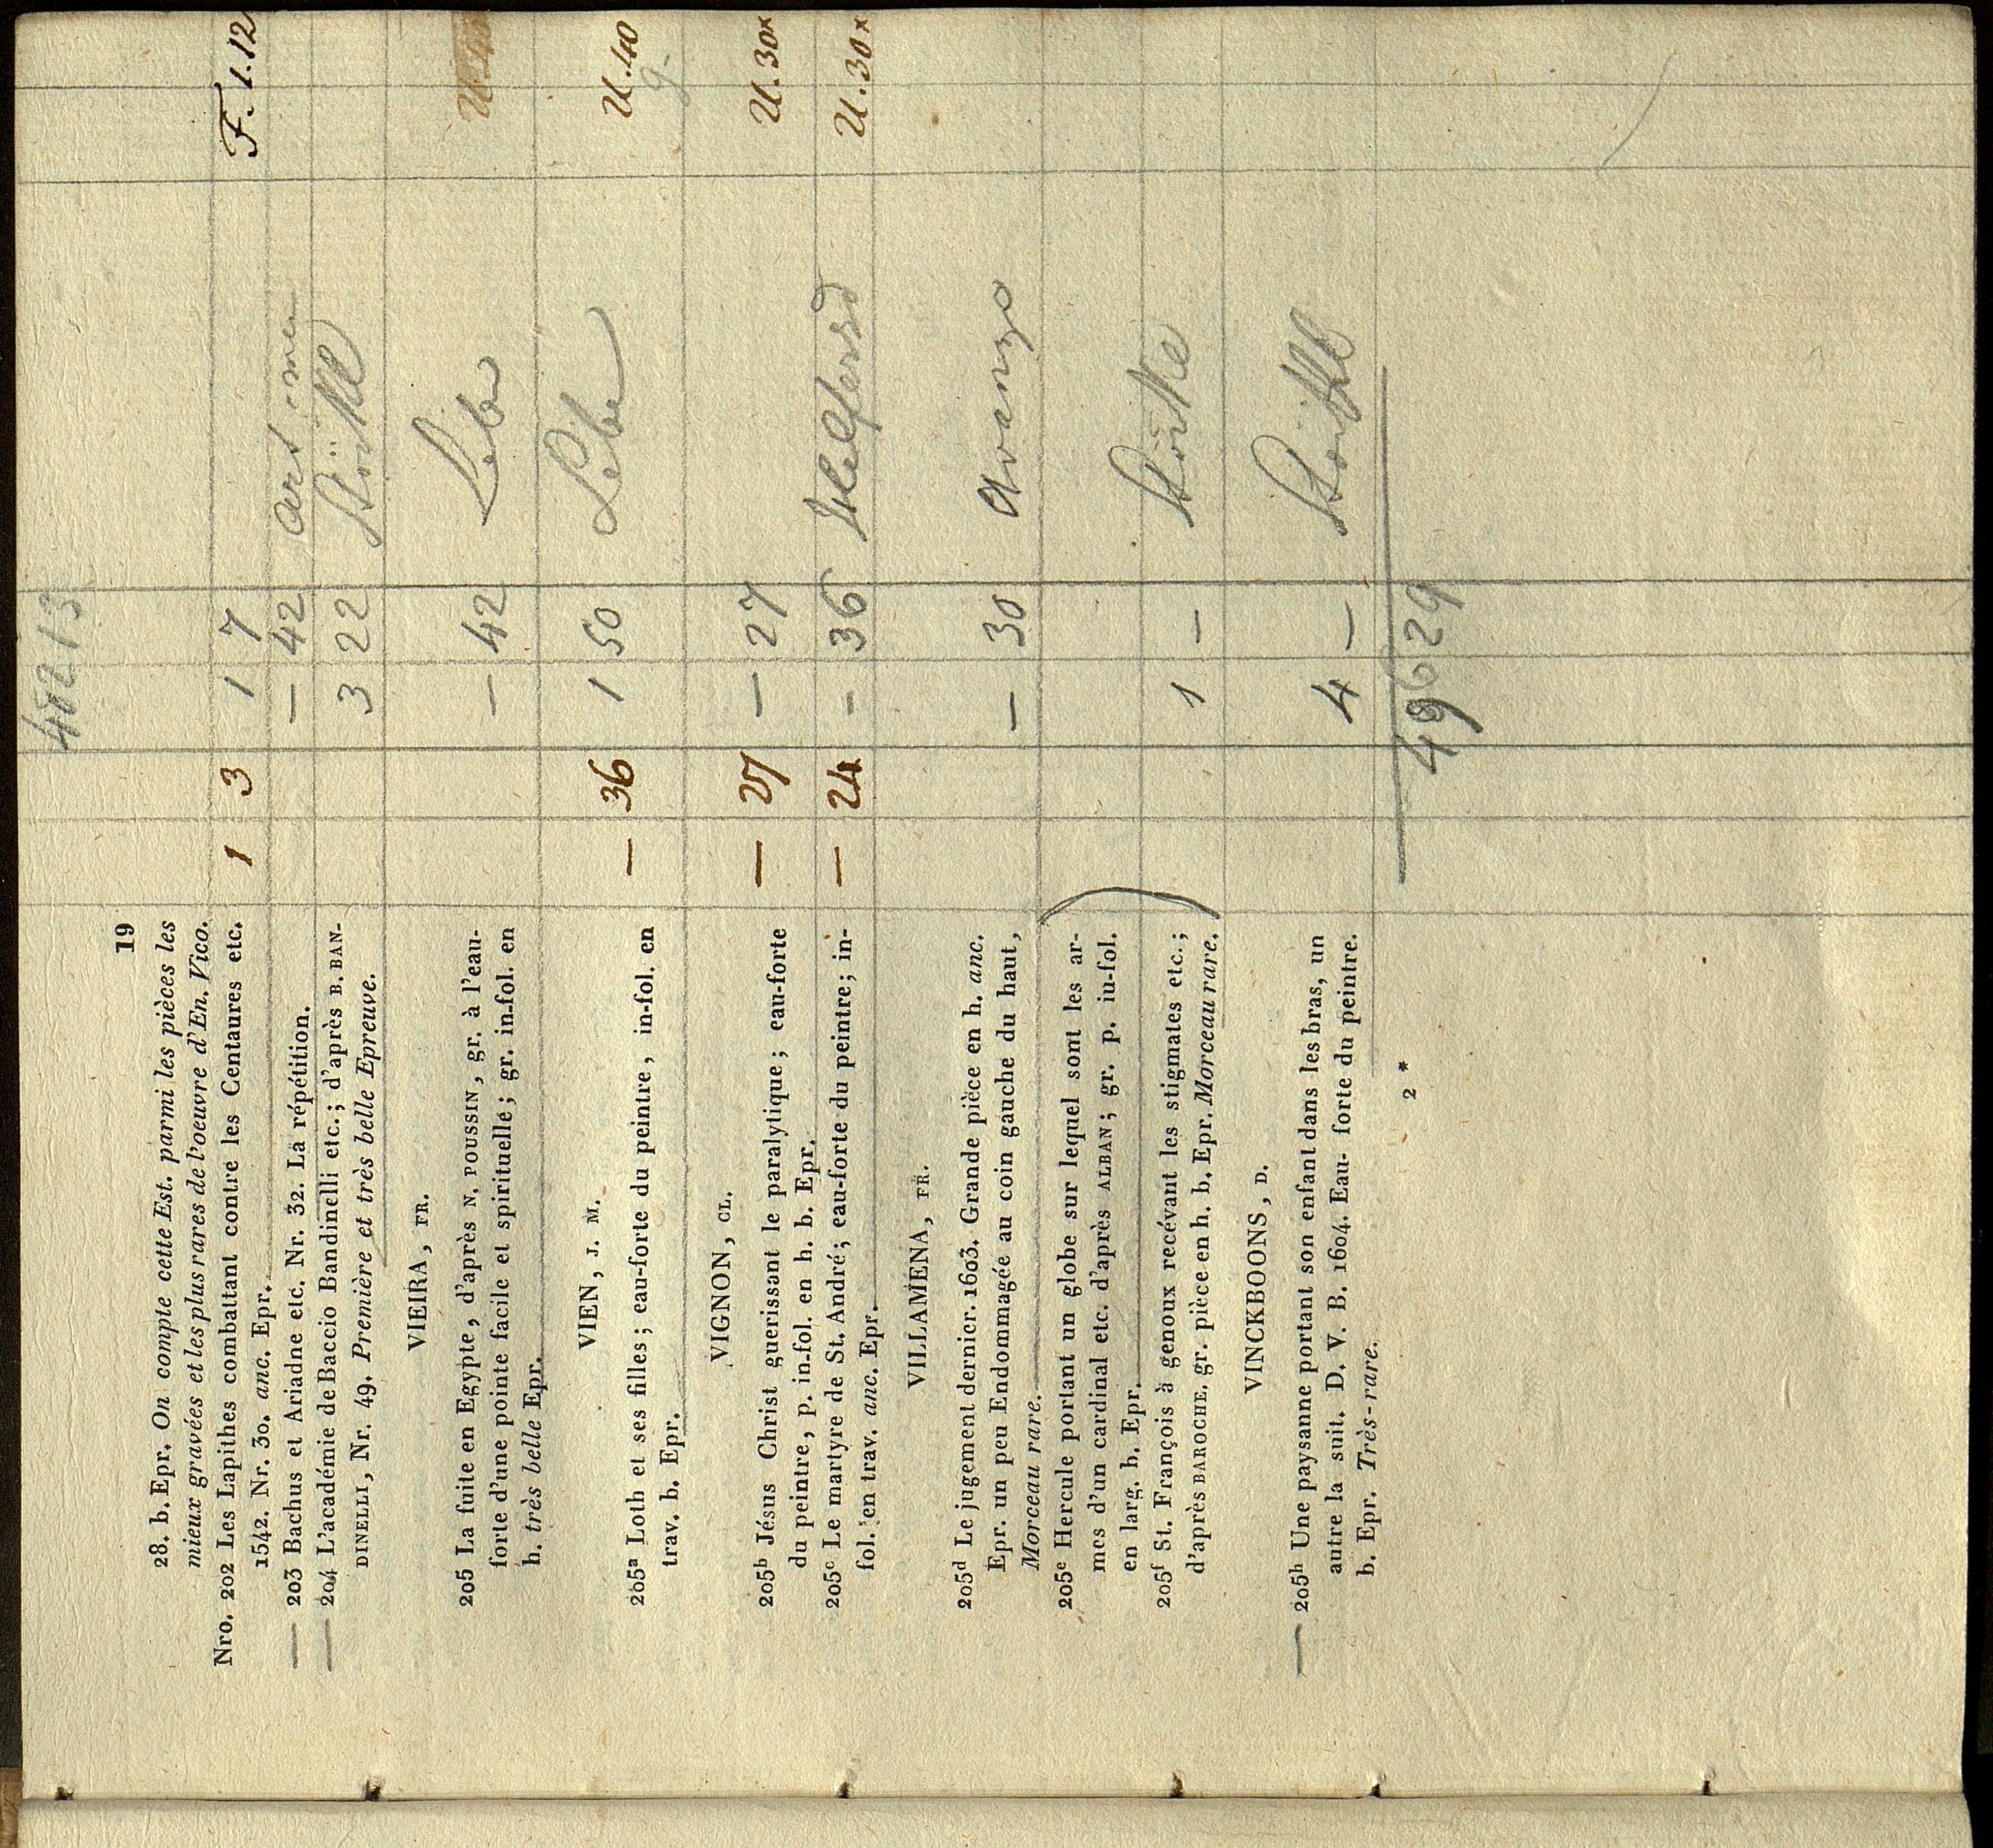 19
48213
28. b. Epr. On compte cette Est. parmi les pièces les
mieux gravées et les plus rares de l'oeuvre d'En. Vico.
Nro. 202 Les Lapithes combattant contre les Centaures etc. 1 3 1 7 F. 1.12
1542. Nr. 30. anc. Epr.
— 203 Bachus et Ariadne etc. Nr. 32. La répétition. — 42
— 204 L'académie de Baccio Bandinelli etc.; d'après B. BAN- 3 22
DINELLI, Nr. 49. Première et très belle Epreuve.
VIEIRA, FR.
205 La fuite en Egypte, d'après N. POUSSIN, gr. à l'eau- — 42
forte d'une pointe facile et spirituelle; gr. in-fol. en
h. très belle Epr.
VIEN, J. M.
205ª Loth et ses filles; eau-forte du peintre, in-fol. en — 36 1 50 U. 40
trav. b. Epr.
VIGNON, CL.
205ᵇ Jésus Christ guerissant le paralytique; eau-forte — 27 — 27 U. 30x
du peintre, p. in-fol. en h. b. Epr.
205ᶜ Le martyre de St. André; eau-forte du peintre; in- — 24 — 36 U. 30x
fol. en trav. anc. Epr.
VILLAMENA, FR.
205ᵈ Le jugement dernier. 1603. Grande pièce en h. anc.
Epr. un peu Endommagée au coin gauche du haut, — 30
Morceau rare.
205ᵉ Hercule portant un globe sur lequel sont les ar-
mes d'un cardinal etc. d'après ALBAN; gr. p. iu-fol.
en larg. b. Epr.
205ᶠ St. François à genoux recévant les stigmates etc.; 1 —
d'après BAROCHE. gr. pièce en h. b. Epr. Morceau rare.
VINCKBOONS, D.
— 205ʰ Une paysanne portant son enfant dans les bras, un
autre la suit. D. V. B. 1604. Eau- forte du peintre. 4 —
b. Epr. Très-rare.
2 *
49629